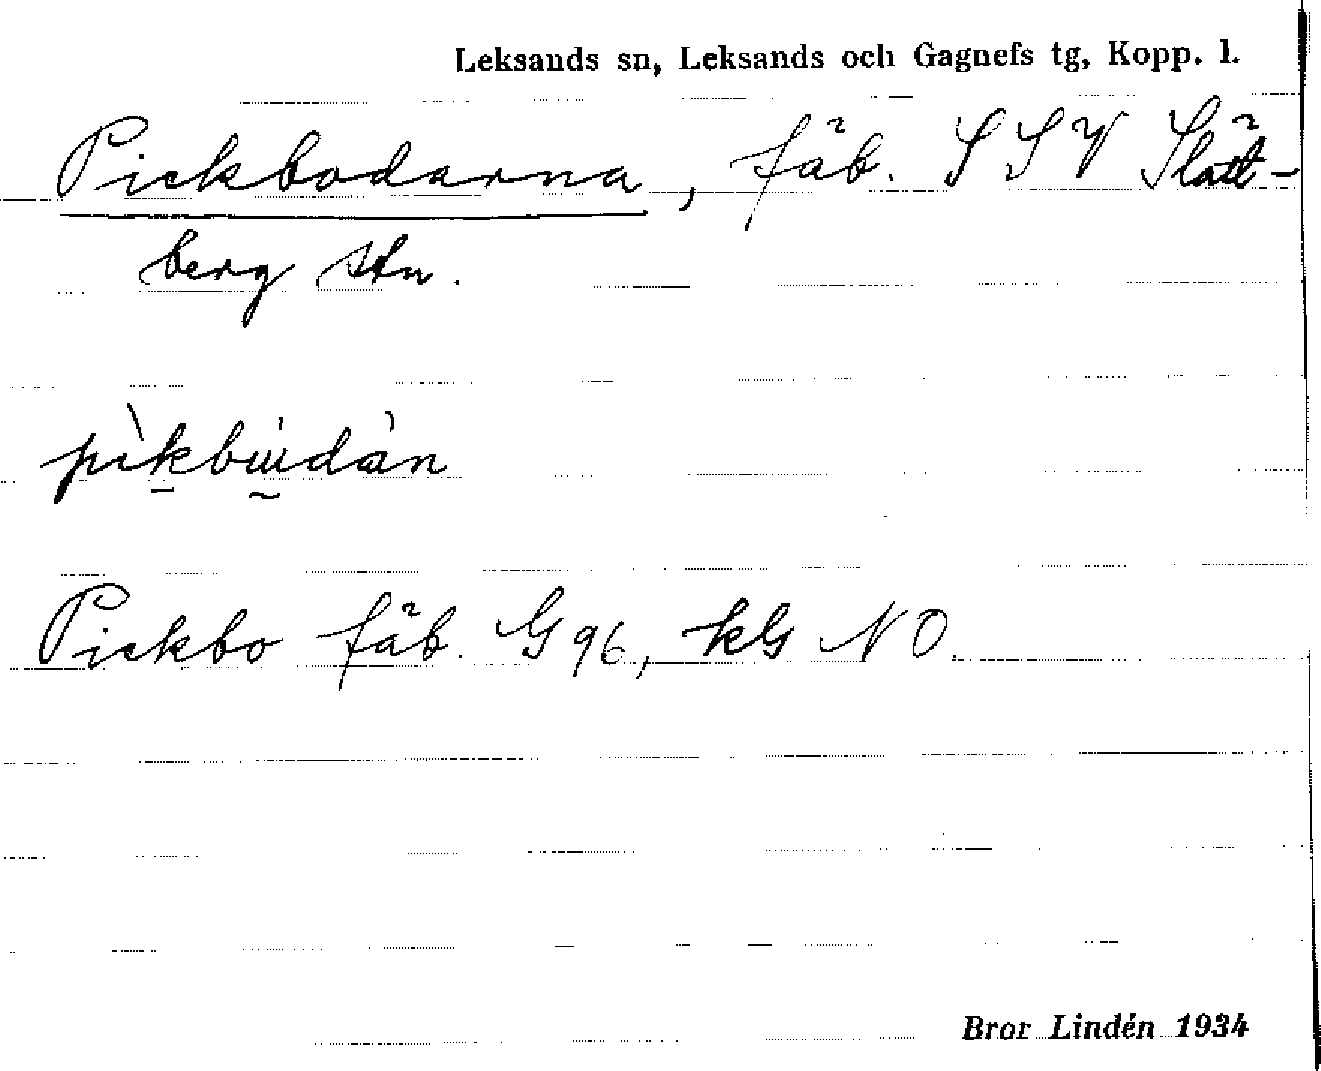 Leksands sn, Leksands och Gagnefs tg, Kopp. l.
Pickbodarna, fäb. SSV Slätt-
berg stn.
Pickbo fäb. G 96, kG NO
Bror Lindén 1934